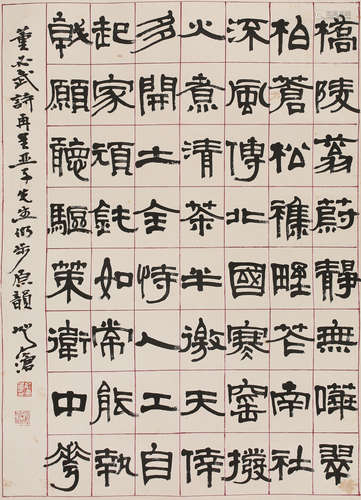 橋陵蓊蔚靜無嘩翠
柏蒼松襍野花南社
流風傳北國寒窑撥
火煮清茶半邀天倖
多開土全恃人工自
起家頑鈍如常能執
戟願聽驅策衛中華
董必武詩再呈亚子先生仍步原韻